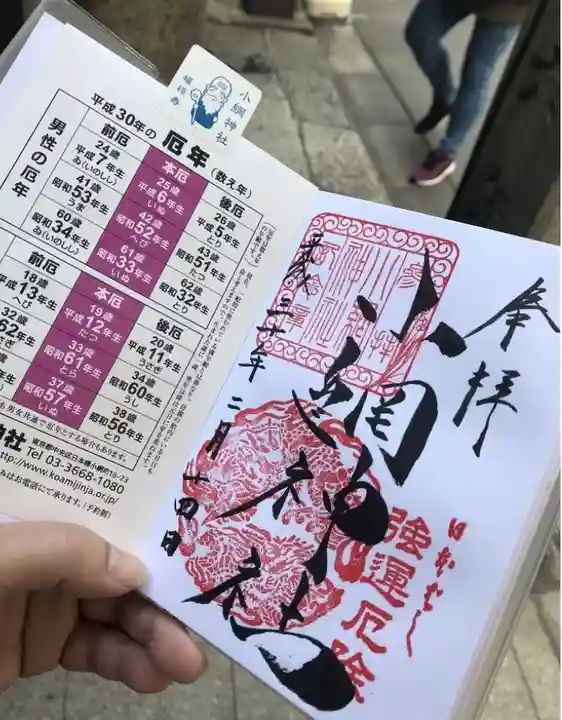 小網神社
福禄寿
平成30年の 厄年（数え年）
男性の厄年
前厄 本厄 後厄
24歳 25歳 26歳
平成7年生 平成6年生 平成5年生
ゐ（いのしし） いぬ とり
41歳 42歳 43歳
昭和53年生 昭和52年生 昭和51年生
うま へび たつ
60歳 61歳 62歳
昭和34年生 昭和33年生 昭和32年生
ゐ（いのしし） いぬ とり
前厄 本厄 後厄
18歳 19歳 20歳
平成13年生 平成12年生 平成11年生
へび たつ うさぎ
32歳 33歳 34歳
62年生 昭和61年生 昭和60年生
さぎ とら うし
37歳 38歳
昭和57年生 昭和56年生
いぬ とり
も男女共通で厄年とする場合もあります。
神社
東京都中央区日本橋小網町16-23
Tel 03-3668-1080
http://www.koamijinja.or.jp/
みはお電話にて承ります。（予約制）
奉拝
小網神社
平成三十年二月十四日
強運厄除